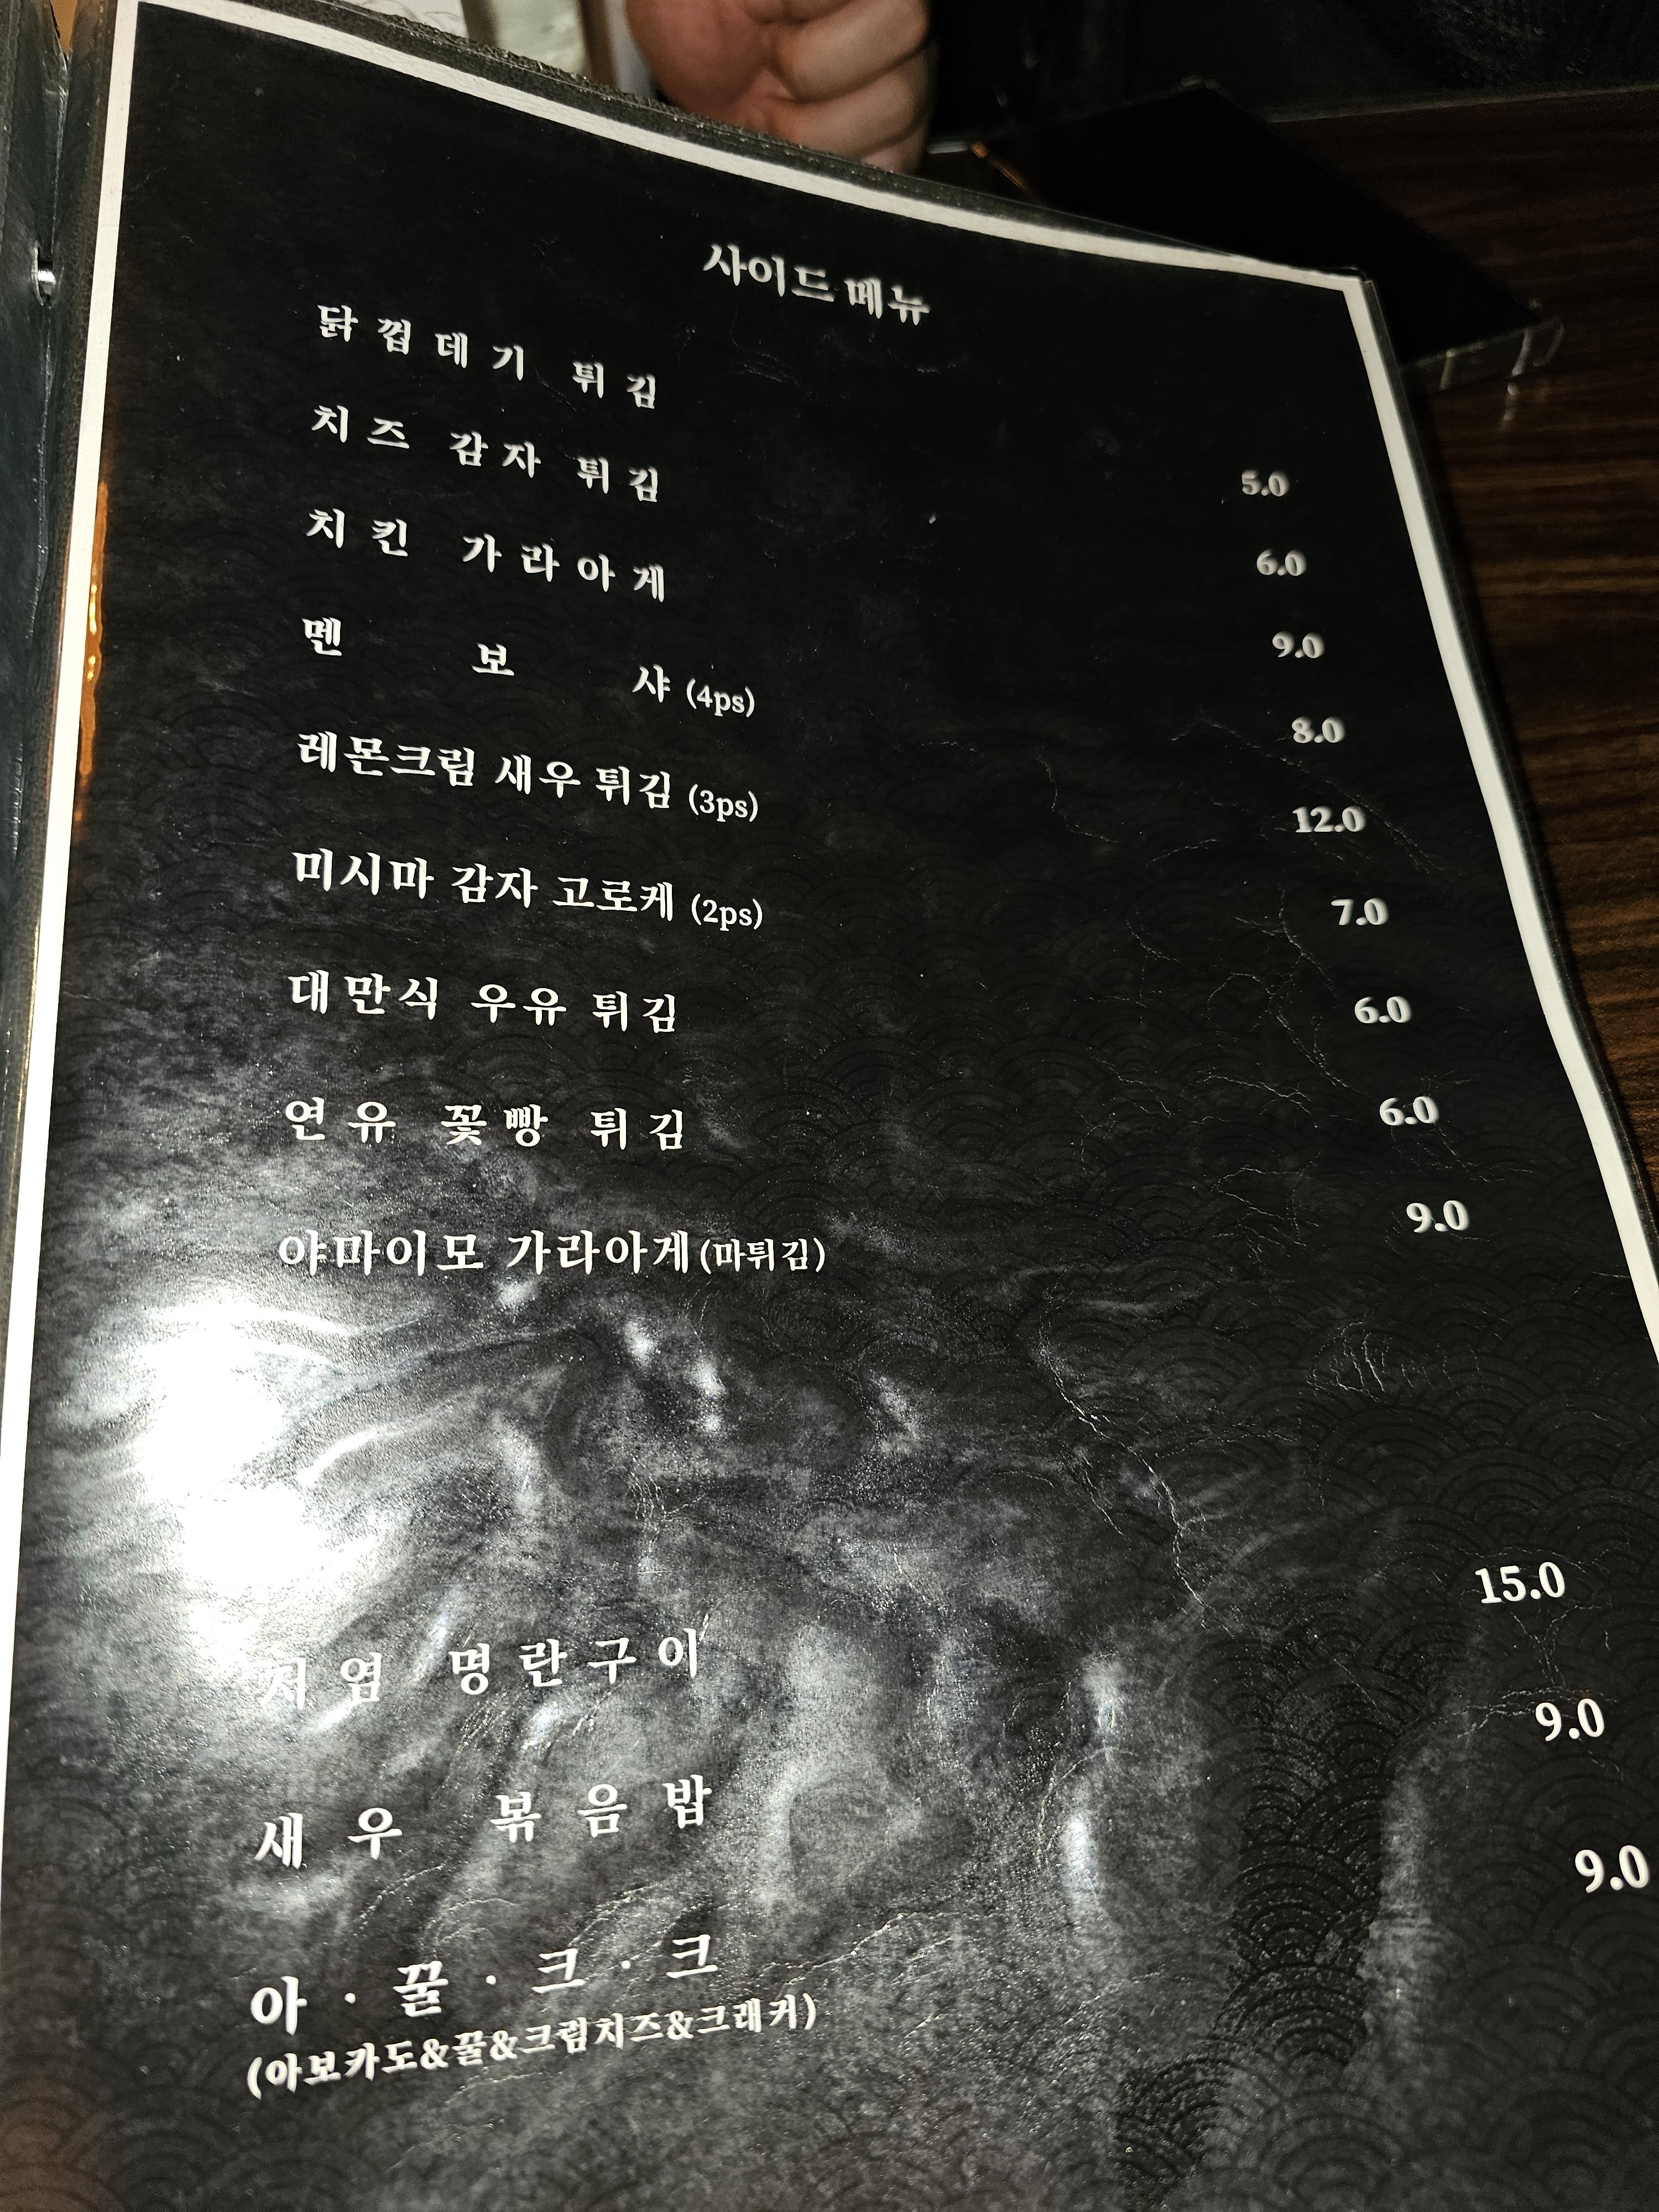 사이드 메뉴
닭껍데기 튀김 5.0
치즈 감자 튀김 6.0
치킨 가라아게 9.0
멘보샤 (4ps) 8.0
레몬크림 새우 튀김 (3ps) 12.0
미시마 감자 고로케 (2ps) 7.0
대만식 우유 튀김 6.0
연유 꽃빵 튀김 6.0
야마이모 가라아게(마튀김) 9.0
저염 명란구이 15.0
새우 볶음밥 9.0
아·꿀·크·크 9.0
(아보카도&꿀&크림치즈&크래커)